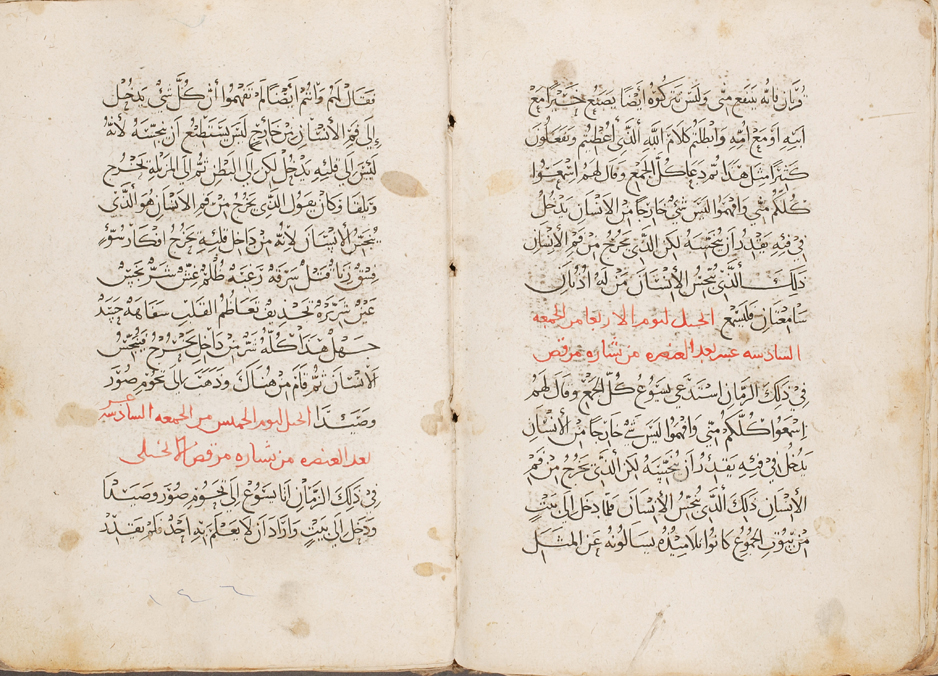 قربان فانه ينتفع مني وليس تتركوه ايضا يصنع خيرا مع
ابيه او مع امه وابطلتم كلام الله الذي اعطيتم وتفعلون
كثيرا مثل هذا ثم دعا كل الجمع وقال لهم اسمعوا
كلكم مني وافهموا ليس شي خارجا من الانسان يدخل
في فيه يقدر ان ينجسه لكن الذي يخرج من فم الانسان
ذلك الذي ينجس الانسان من له اذنان
سامعتان فليسمع الانجيل ليوم الاربعا من الجمعه
السادسه عشر بعد العنصره من بشاره مرقص
في ذلك الزمان استدعي يسوع كل الجمع وقال لهم
اسمعوا كلكم مني وافهموا ليس شي خارجا من الانسان
يدخل في فيه يقدر ان ينجسه لكن الذي يخرج من فم
الانسان ذلك الذي ينجس الانسان فلما دخل الي بيت
من بيوت الجموع كانوا تلاميذه يسالونه عن المثل
فقال لهم وانتم ايضا لم تفهموا ان كل شي يدخل
الي فم الانسان من خارج ليس يستطيع ان ينجسه لانه
ليس الي قلبه يدخل لكن الي البطن ثم الي المزبله يخرج
وينقا وكان يقول الذي يخرج من فم الانسان هو الذي
ينجس الانسان لانه من داخل قلبه يخرج افكار سوء
فسق زنا قتل سرقه رغبه ظلم غش شر نجس
عين شريره تجديف تعاظم القلب سفاهه
جهل هذا كله شر من داخل يخرج فينجس
الانسان ثم قام من هناك وذهب الي تخوم صور
وصيدا الانجيل ليوم الخميس من الجمعه السادسه عشر
بعد العنصره من بشاره مرقص الانجيلي
في ذلك الزمان اتا يسوع الي تخوم صور وصيدا
ودخل الي بيت واراد ان لا يعلم به احد فلم يقدر